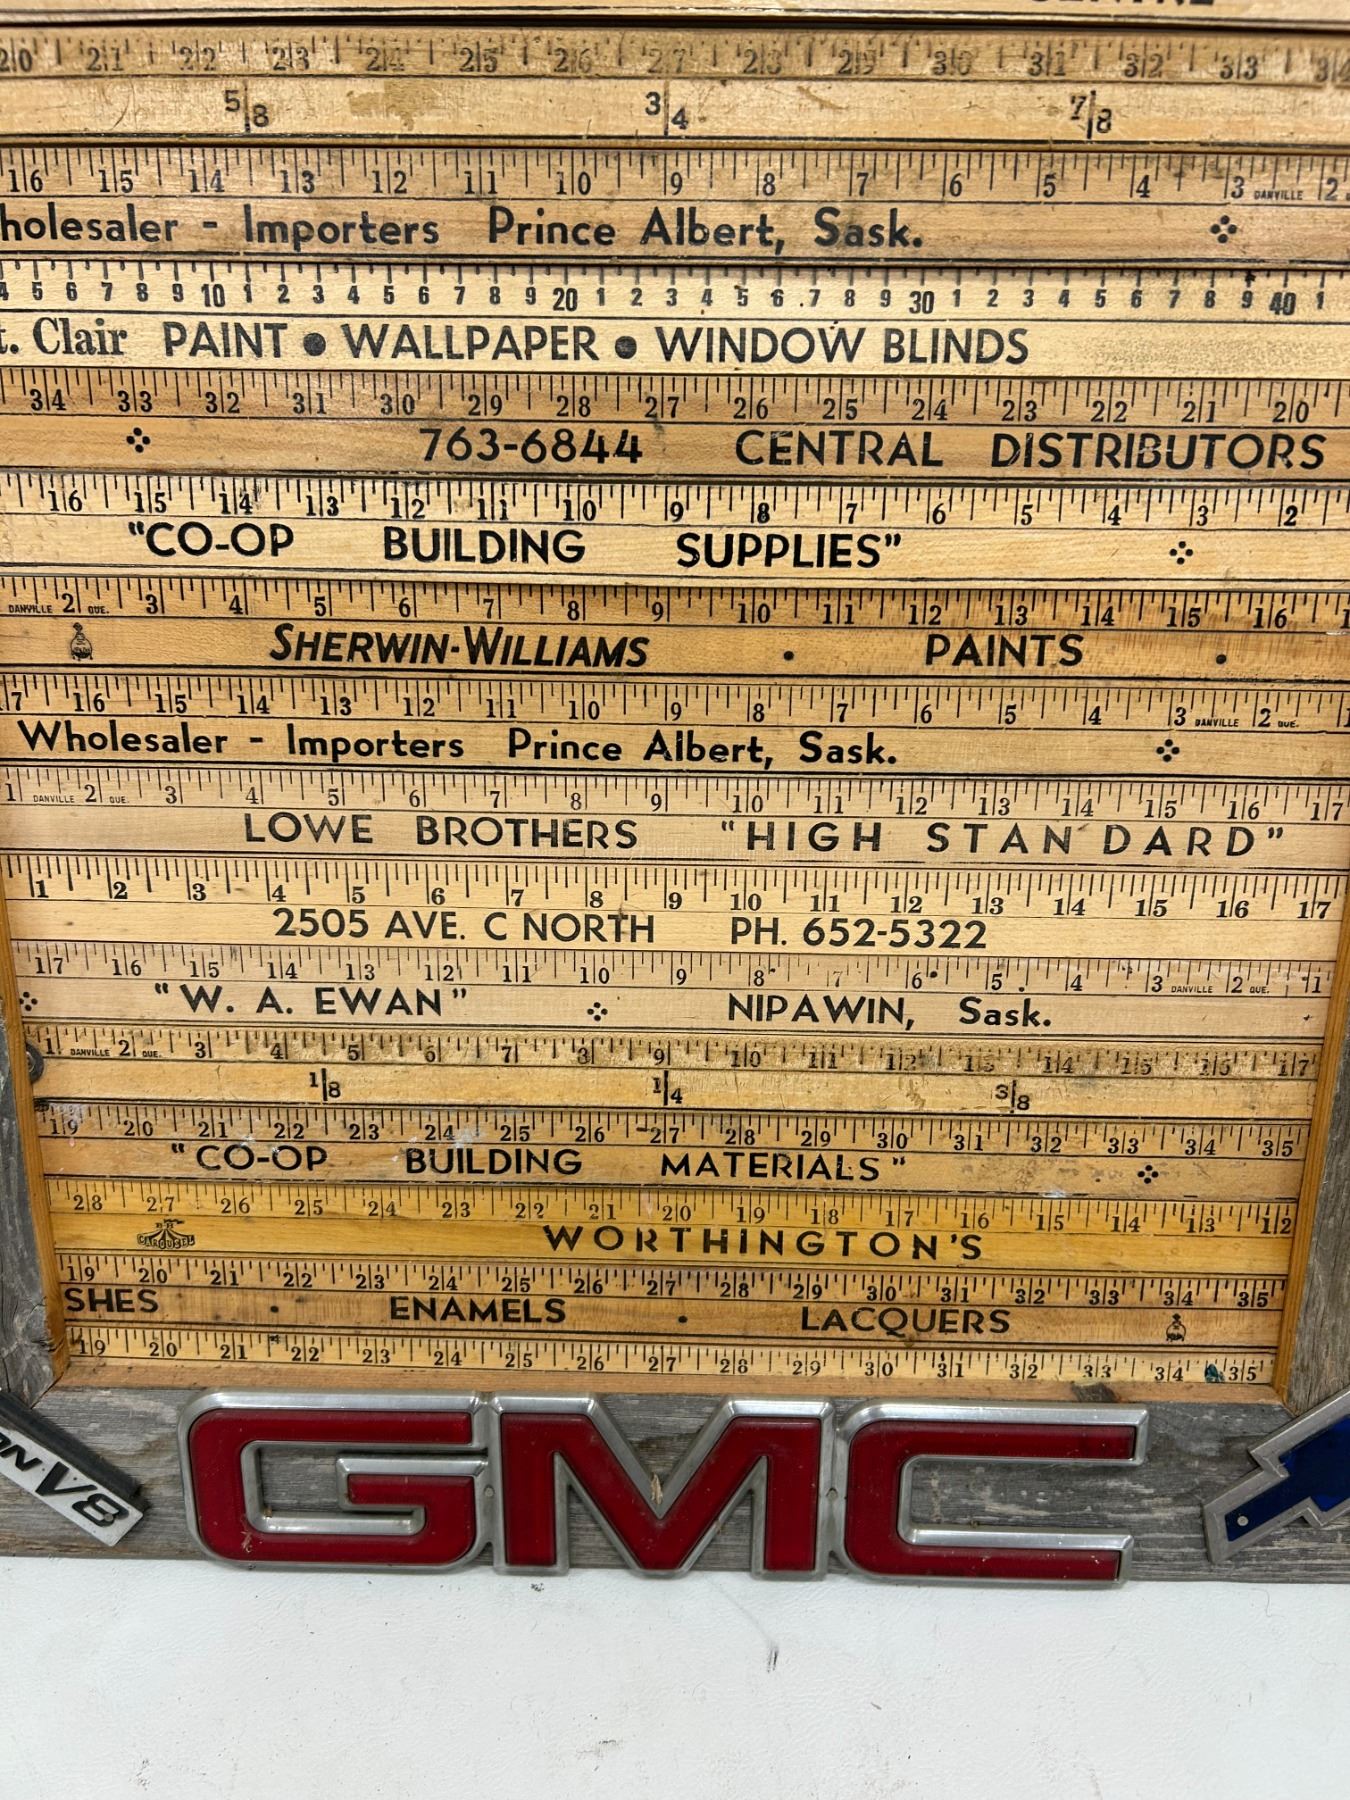 CENTRE
20 21 22 23 24 25 26 27 28 29 30 31 32 33 34
5/8 3/4 7/8
16 15 14 13 12 11 10 9 8 7 6 5 4 3 DANVILLE 2
holesaler - Importers Prince Albert, Sask.
4 5 6 7 8 9 10 1 2 3 4 5 6 7 8 9 20 1 2 3 4 5 6 7 8 9 30 1 2 3 4 5 6 7 8 9 40 1
t. Clair PAINT • WALLPAPER • WINDOW BLINDS
34 33 32 31 30 29 28 27 26 25 24 23 22 21 20
763-6844 CENTRAL DISTRIBUTORS
16 15 14 13 12 11 10 9 8 7 6 5 4 3 2
"CO-OP BUILDING SUPPLIES"
DANVILLE 2 QUE. 3 4 5 6 7 8 9 10 11 12 13 14 15 16 1
SHERWIN-WILLIAMS • PAINTS •
17 16 15 14 13 12 11 10 9 8 7 6 5 4 3 DANVILLE 2 QUE. 1
Wholesaler - Importers Prince Albert, Sask.
1 DANVILLE 2 QUE. 3 4 5 6 7 8 9 10 11 12 13 14 15 16 17
LOWE BROTHERS "HIGH STANDARD"
1 2 3 4 5 6 7 8 9 10 11 12 13 14 15 16 17
2505 AVE. C NORTH PH. 652-5322
17 16 15 14 13 12 11 10 9 8 7 6 5 4 3 DANVILLE 2 QUE. 1
"W. A. EWAN" NIPAWIN, Sask.
1 DANVILLE 2 QUE. 3 4 5 6 7 8 9 10 11 12 13 14 15 16 17
1/8 1/4 3/8
19 20 21 22 23 24 25 26 27 28 29 30 31 32 33 34 35
"CO-OP BUILDING MATERIALS"
28 27 26 25 24 23 22 21 20 19 18 17 16 15 14 13 12
CAROUSEL WORTHINGTON'S
19 20 21 22 23 24 25 26 27 28 29 30 31 32 33 34 35
SHES • ENAMELS • LACQUERS
19 20 21 22 23 24 25 26 27 28 29 30 31 32 33 34 35
ON V8
GMC